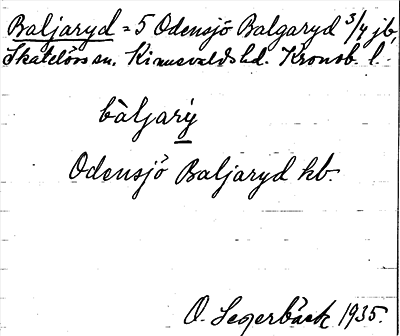 Baljaryd = 5 Odensjö Balgaryd 3/4 jb,
Skatelövs sn. Kinnevalds hd. Kronob. l.
bàljarẏ
Odensjö Baljaryd kb.
O. Segerbäck 1935.